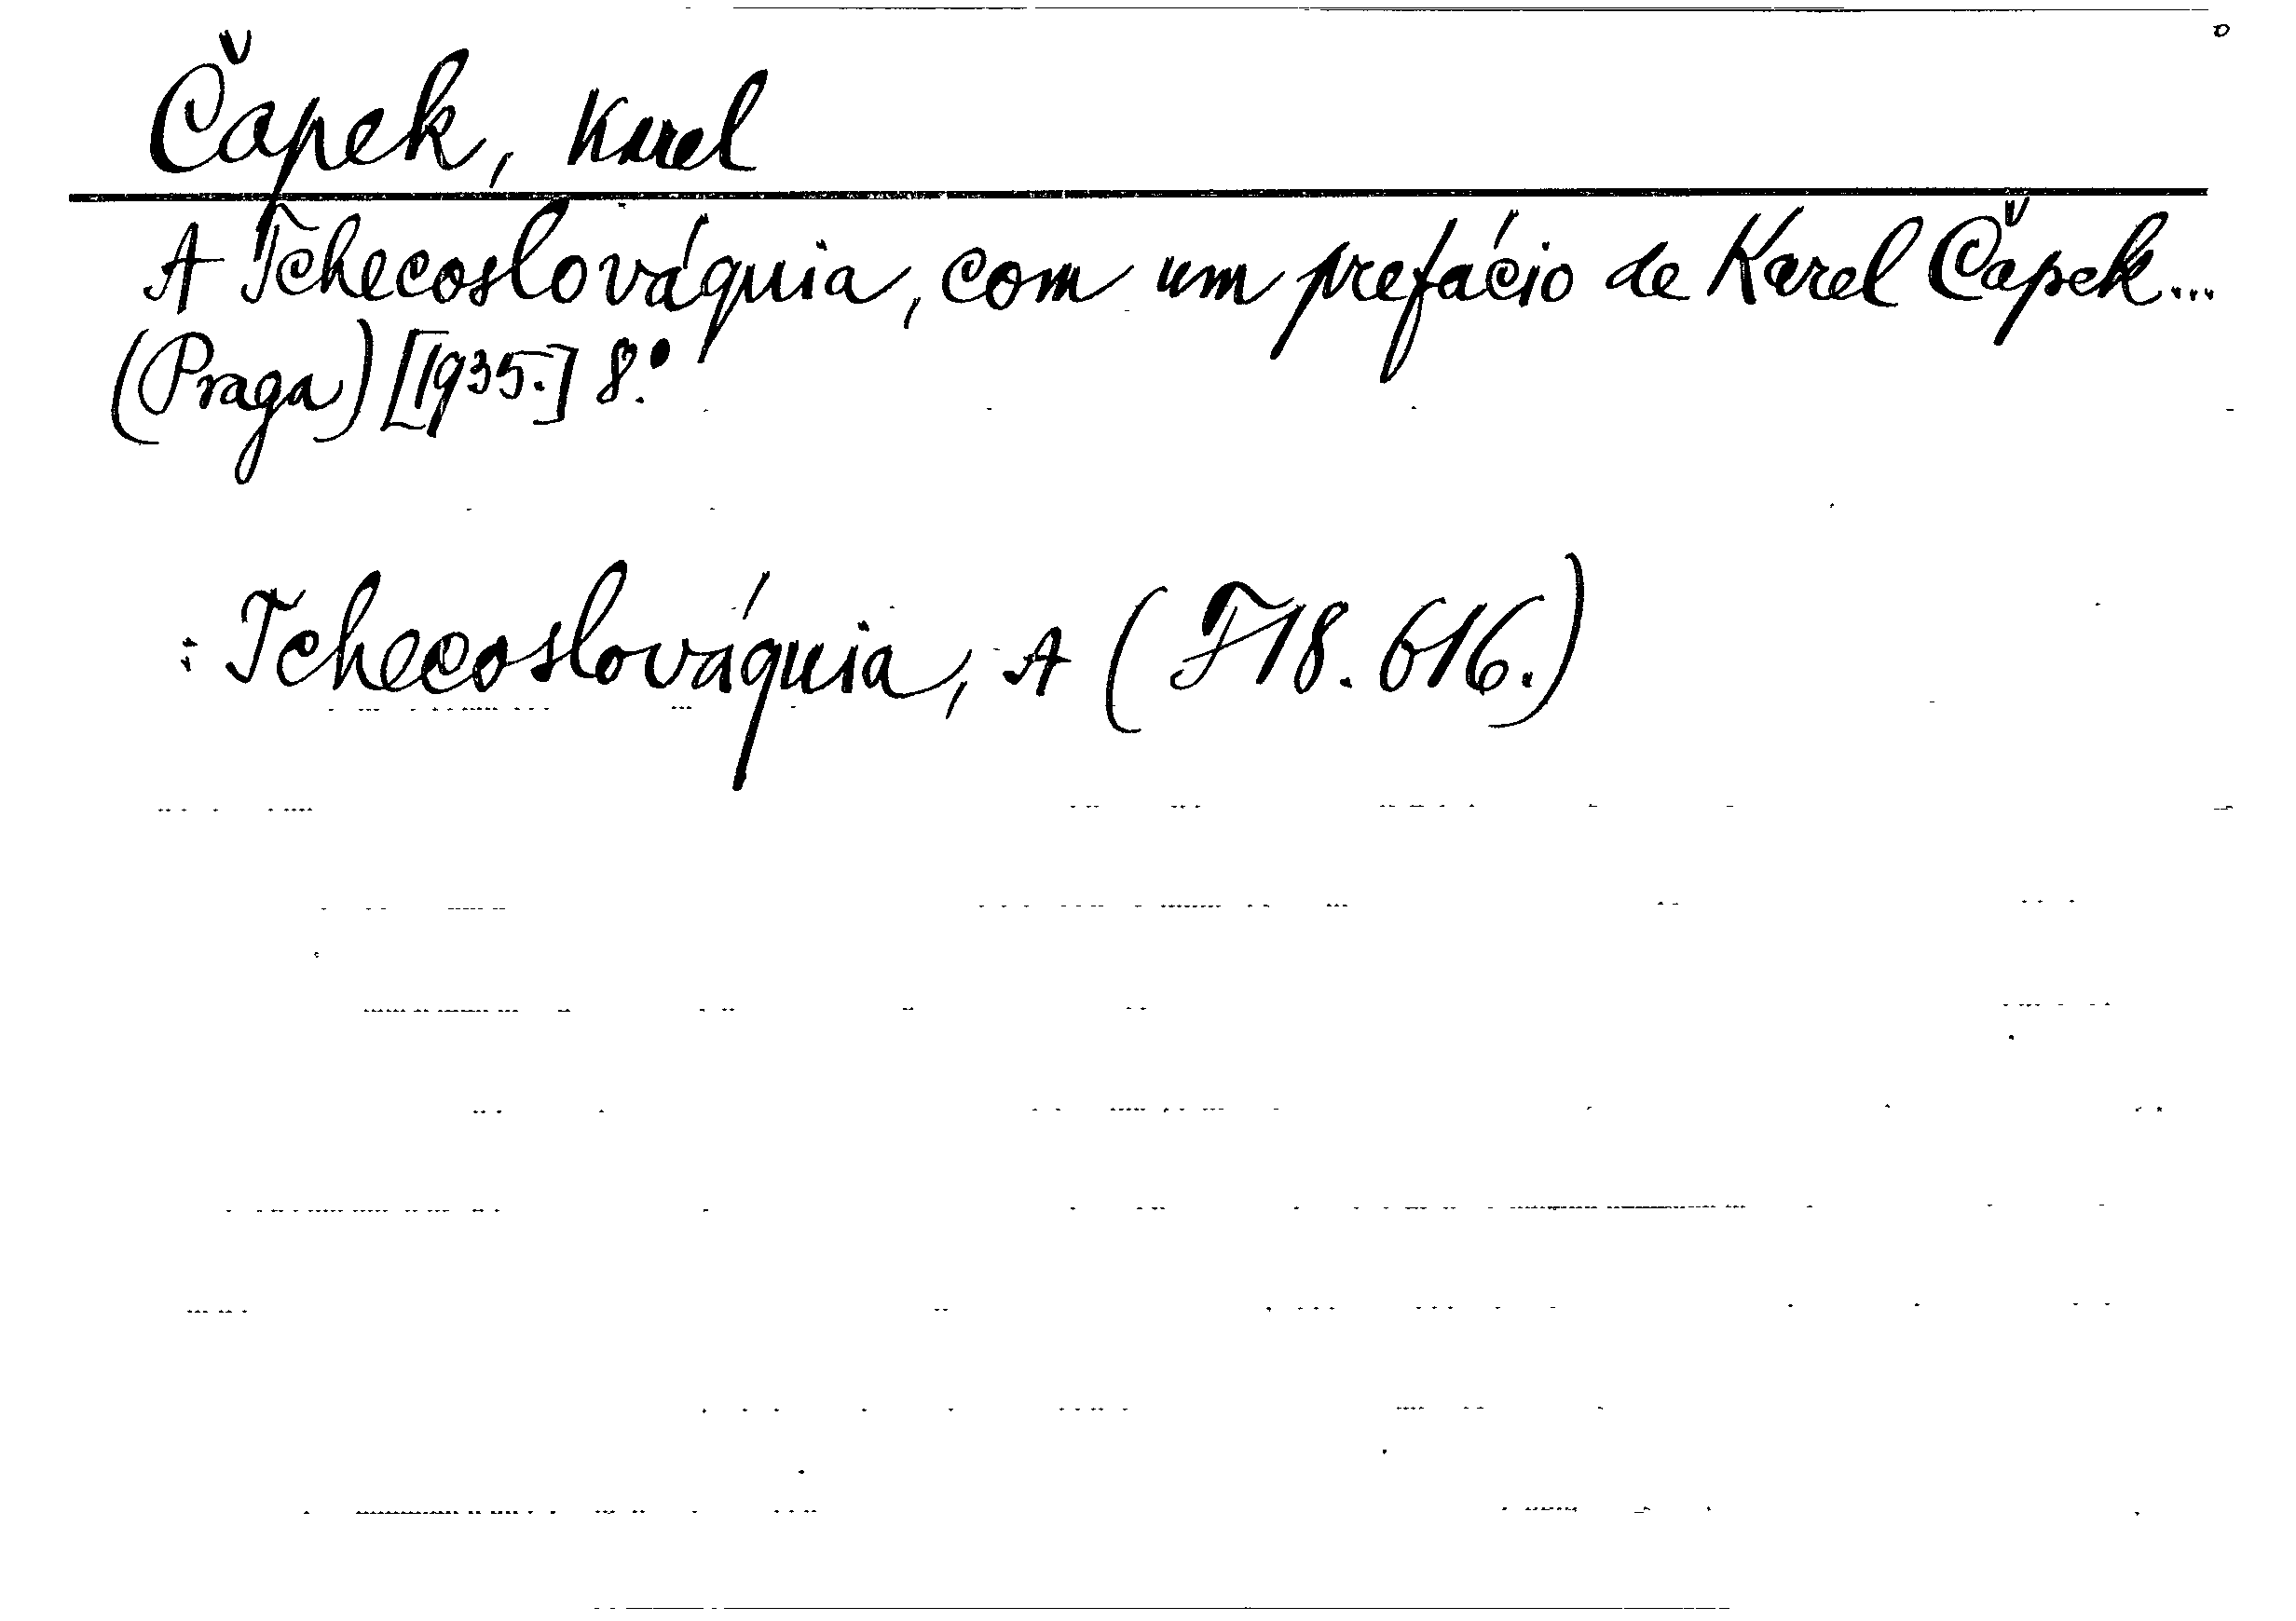 Čapek, Karel
A Tchecoslováquia, com um prefácio de Karel Čapek...
(Praga) [1935.] 8.º
: Tchecoslováquia, A (F18.616.)